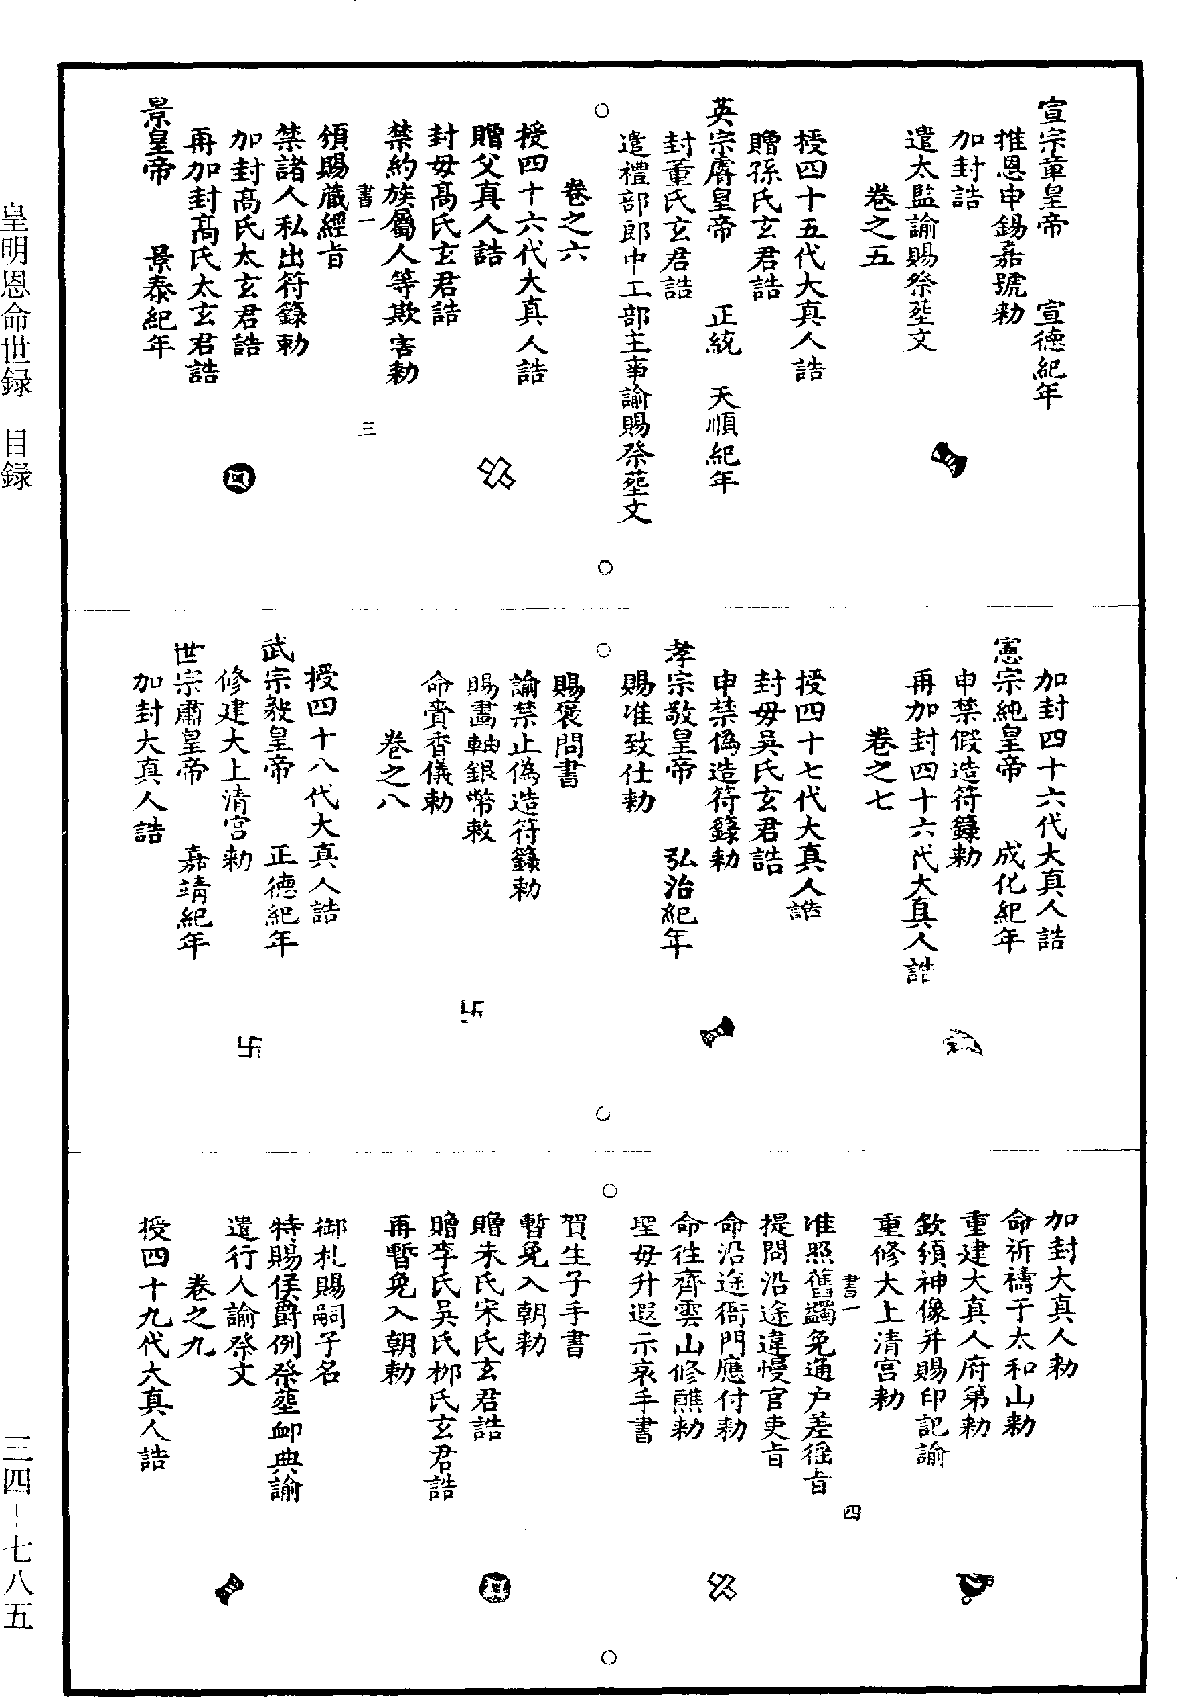 宣宗章皇帝　宣德紀年
推恩申錫嘉號勅
加封誥
遣太監諭賜祭塋文
卷之五
授四十五代大真人誥
贈孫氏玄君誥
英宗睿皇帝　正統　天順紀年
封董氏玄君誥
遣禮部郎中工部主事諭賜祭塋文
卷之六
授四十六代大真人誥
贈父真人誥
封母高氏玄君誥
禁約族屬人等欺害勅
書一　三
頒賜藏經旨
禁諸人私出符籙勅
加封高氏太玄君誥
再加封高氏太玄君誥
景皇帝　景泰紀年
加封四十六代大真人誥
憲宗純皇帝　成化紀年
申禁假造符籙勅
再加封四十六代大真人誥
卷之七
授四十七代大真人誥
封母吳氏玄君誥
申禁偽造符籙勅
孝宗敬皇帝　弘治紀年
賜准致仕勅
賜褒問書
諭禁止偽造符籙勅
賜畫軸銀幣敕
命賫香儀勅
卷之八
授四十八代大真人誥
武宗毅皇帝　正德紀年
修建大上清宮勅
世宗肅皇帝　嘉靖紀年
加封大真人誥
加封大真人勅
命祈禱于太和山勅
重建大真人府第勅
欽頒神像并賜印記諭
重修大上清宮勅
書一　四
准照舊蠲免通户差徭旨
提問沿途違慢官吏旨
命沿途衙門應付勅
命往齊雲山修醮勅
聖母升遐示哀手書
賀生子手書
暫免入朝勅
贈朱氏宋氏玄君誥
贈李氏吳氏柳氏玄君誥
再暫免入朝勅
御札賜嗣子名
特賜侯爵例祭塋卹典諭
遣行人諭祭文
卷之九
授四十九代大真人誥
皇明恩命世録　目録
三四-七八五